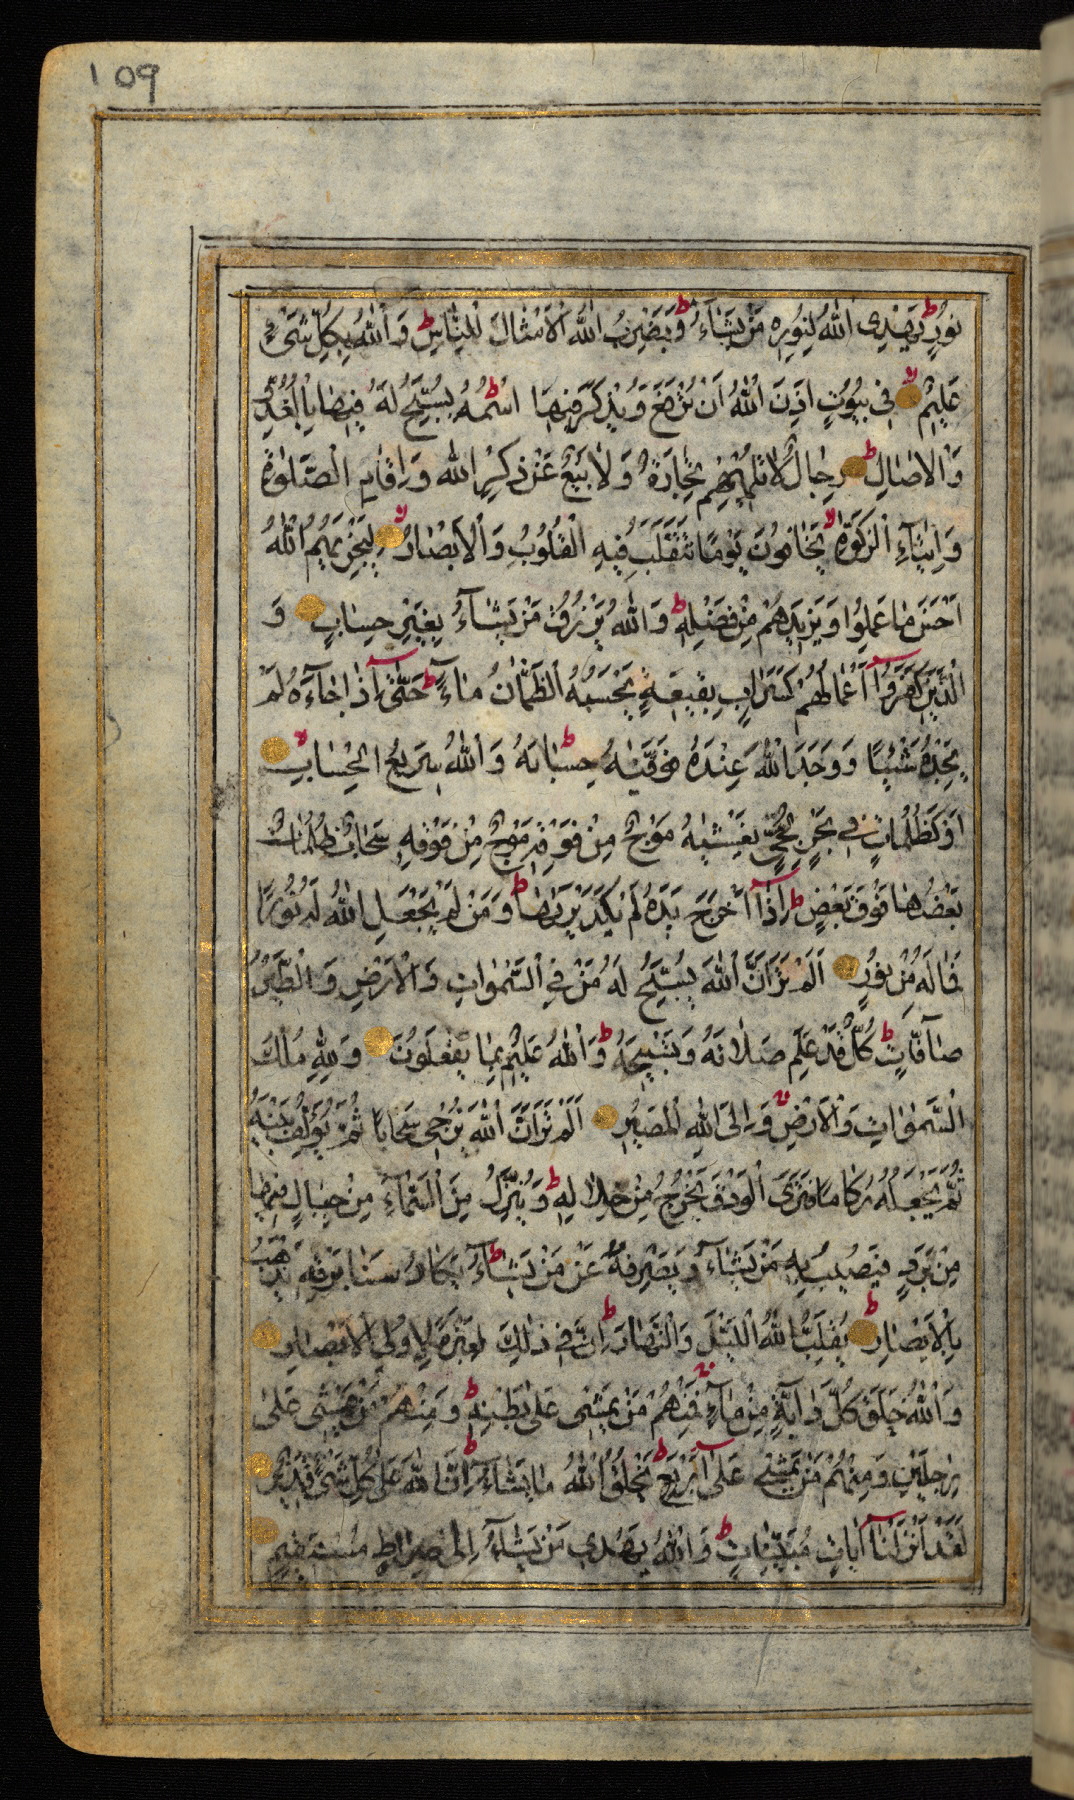 109
نُورٍ ط يَهْدِى اللهُ لِنُورِهِ مَنْ يَشَآءُ ط وَيَضْرِبُ اللهُ الْاَمْثَالَ لِلنَّاسِ ط وَاللهُ بِكُلِّ شَىْءٍ
عَلِيمٌ لا فِى بُيُوتٍ اَذِنَ اللهُ اَنْ تُرْفَعَ وَيُذْكَرَ فِيهَا اسْمُهُ يُسَبِّحُ لَهُ فِيهَا بِالْغُدُوِّ
وَالْاٰصَالِ ط رِجَالٌ لَا تُلْهِيهِمْ تِجَارَةٌ وَلَا بَيْعٌ عَنْ ذِكْرِ اللهِ وَاِقَامِ الصَّلٰوةِ
وَاِيتَآءِ الزَّكٰوةِ لا يَخَافُونَ يَوْمًا تَتَقَلَّبُ فِيهِ الْقُلُوبُ وَالْاَبْصَارُ لا لِيَجْزِيَهُمُ اللهُ
اَحْسَنَ مَا عَمِلُوا وَيَزِيدَهُمْ مِنْ فَضْلِهِ ط وَاللهُ يَرْزُقُ مَنْ يَشَآءُ بِغَيْرِ حِسَابٍ وَ
الَّذِينَ كَفَرُوآ اَعْمَالُهُمْ كَسَرَابٍ بِقِيعَةٍ يَحْسَبُهُ الظَّمْاٰنُ مَآءً ط حَتّٰىٓ اِذَا جَآءَهُ لَمْ
يَجِدْهُ شَيْئًا وَوَجَدَ اللهَ عِنْدَهُ فَوَفّٰيهُ حِسَابَهُ ط وَاللهُ سَرِيعُ الْحِسَابِ لا
اَوْ كَظُلُمَاتٍ فِى بَحْرٍ لُجِّىٍّ يَغْشٰيهُ مَوْجٌ مِنْ فَوْقِهِ مَوْجٌ مِنْ فَوْقِهِ سَحَابٌ ظُلُمَاتٌ
بَعْضُهَا فَوْقَ بَعْضٍ ط اِذَآ اَخْرَجَ يَدَهُ لَمْ يَكَدْ يَرٰيهَا ط وَمَنْ لَمْ يَجْعَلِ اللهُ لَهُ نُورًا
فَمَا لَهُ مِنْ نُورٍ اَلَمْ تَرَ اَنَّ اللهَ يُسَبِّحُ لَهُ مَنْ فِى السَّمٰوَاتِ وَالْاَرْضِ وَالطَّيْرُ
صَآفَّاتٍ ط كُلٌّ قَدْ عَلِمَ صَلَاتَهُ وَتَسْبِيحَهُ ط وَاللهُ عَلِيمٌ بِمَا يَفْعَلُونَ وَلِلّٰهِ مُلْكُ
السَّمٰوَاتِ وَالْاَرْضِ وَاِلَى اللهِ الْمَصِيرُ اَلَمْ تَرَ اَنَّ اللهَ يُزْجِى سَحَابًا ثُمَّ يُؤَلِّفُ بَيْنَهُ
ثُمَّ يَجْعَلُهُ رُكَامًا فَتَرَى الْوَدْقَ يَخْرُجُ مِنْ خِلَالِهِ ط وَيُنَزِّلُ مِنَ السَّمَآءِ مِنْ جِبَالٍ فِيهَا
مِنْ بَرَدٍ فَيُصِيبُ بِهِ مَنْ يَشَآءُ وَيَصْرِفُهُ عَنْ مَنْ يَشَآءُ ط يَكَادُ سَنَا بَرْقِهِ يَذْهَبُ
بِالْاَبْصَارِ ط يُقَلِّبُ اللهُ اللَّيْلَ وَالنَّهَارَ ط اِنَّ فِى ذٰلِكَ لَعِبْرَةً لِاُولِى الْاَبْصَارِ
وَاللهُ خَلَقَ كُلَّ دَآبَّةٍ مِنْ مَآءٍ فَمِنْهُمْ مَنْ يَمْشِى عَلٰى بَطْنِهِ ط وَمِنْهُمْ مَنْ يَمْشِى عَلٰى
رِجْلَيْنِ وَمِنْهُمْ مَنْ يَمْشِى عَلٰىٓ اَرْبَعٍ ط يَخْلُقُ اللهُ مَا يَشَآءُ ط اِنَّ اللهَ عَلٰى كُلِّ شَىْءٍ قَدِيرٌ
لَقَدْ اَنْزَلْنَآ اٰيَاتٍ مُبَيِّنَاتٍ ط وَاللهُ يَهْدِى مَنْ يَشَآءُ اِلٰى صِرَاطٍ مُسْتَقِيمٍ